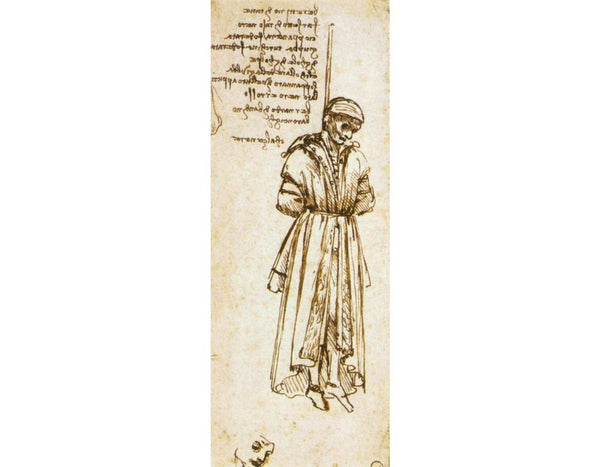 berettino di tane
farsetto di raso nero
cioppa nera foderata
giubba turchina foderata
di gole di volpe
el collare della giubba
soppannato di velluto
nero e rosso
bernardo di bandino
baroncigli
calze nere